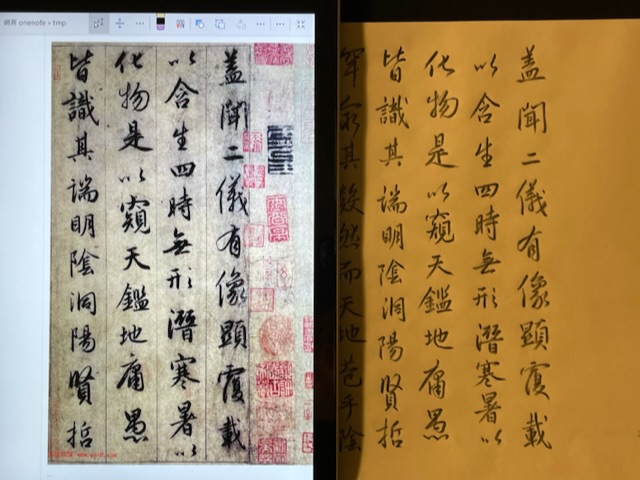 盖聞二儀有像顯覆載
以含生四時無形潛寒暑以
化物是以窺天鑑地庸愚
皆識其端明陰洞陽賢哲
盖聞二儀有像顯覆載
以含生四時無形潛寒暑以
化物是以窺天鑑地庸愚
皆識其端明陰洞陽賢哲
罕窮其數然而天地苞乎陰